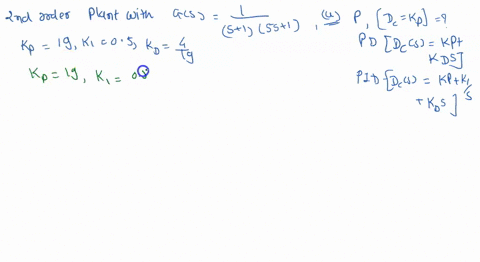 2nd order Plant with G(s) = 1 / (s+1)(5s+1) , (a) P, [Dc = Kp] = ?
Kp = 19, K1 = 0.5, KD = 4/19
PD [Dc(s) = KP + KDS]
Kp = 19, K1 = 0.5
PID [Dc(s) = KP + K1/s + KDS]